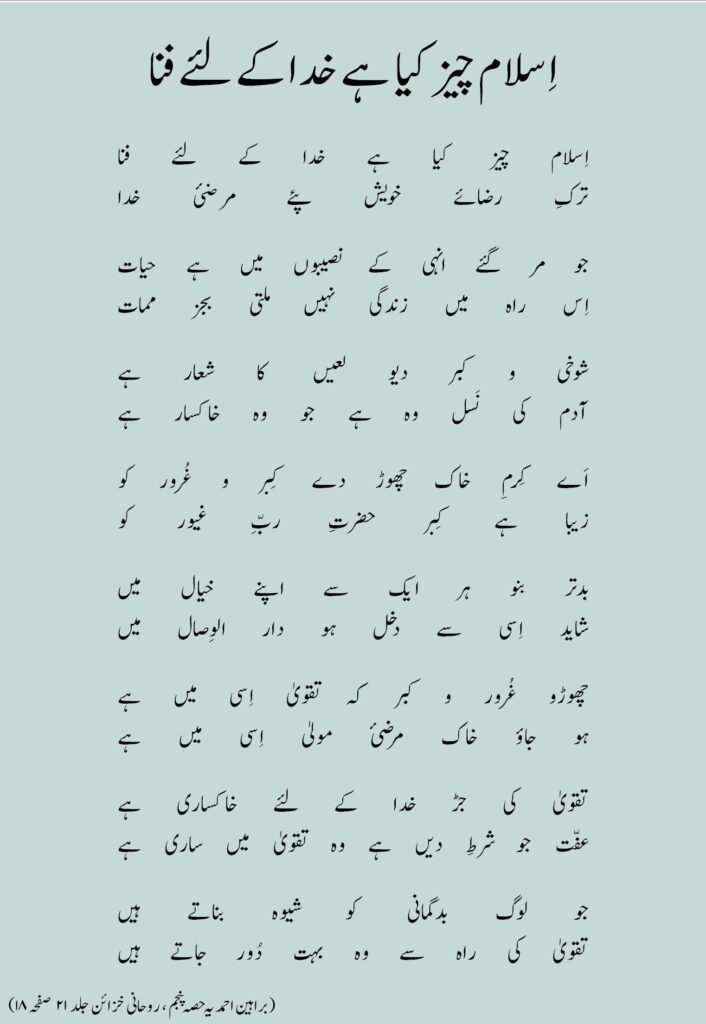 اِسلام چیز کیا ہے خدا کے لئے فنا
اِسلام چیز کیا ہے خدا کے لئے فنا
ترکِ رضائے خویش پئے مرضیٔ خدا
جو مر گئے انہی کے نصیبوں میں ہے حیات
اِس راہ میں زندگی نہیں ملتی بجز ممات
شوخی و کبر دیو لعیں کا شعار ہے
آدم کی نَسل وہ ہے جو وہ خاکسار ہے
اَے کِرمِ خاک چھوڑ دے کِبر و غُرور کو
زیبا ہے کِبر حضرتِ ربِّ غیور کو
بدتر بنو ہر ایک سے اپنے خیال میں
شاید اِسی سے دخل ہو دار الوِصال میں
چھوڑو غُرور و کبر کہ تقویٰ اِسی میں ہے
ہو جاؤ خاک مرضیٔ مولیٰ اِسی میں ہے
تقویٰ کی جڑ خدا کے لئے خاکساری ہے
عفّت جو شرطِ دیں ہے وہ تقویٰ میں ساری ہے
جو لوگ بدگمانی کو شیوہ بناتے ہیں
تقویٰ کی راہ سے وہ بہت دُور جاتے ہیں
(براہین احمدیہ حصہ پنجم، روحانی خزائن جلد ۲۱ صفحہ ۱۸)